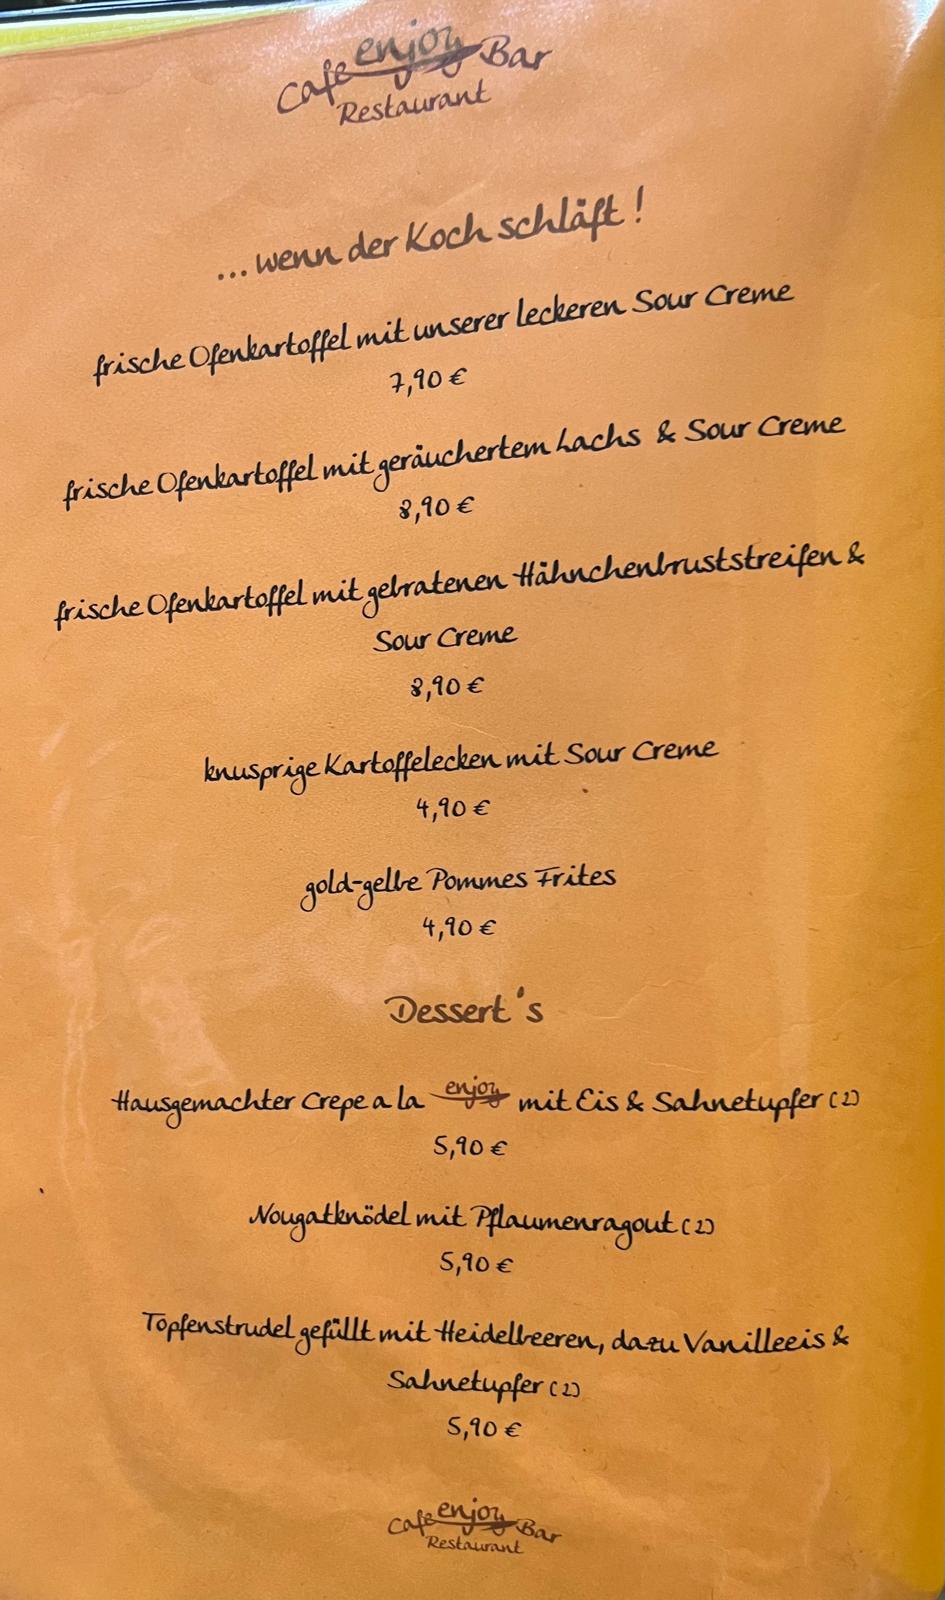 Cafe enjoy Bar
Restaurant
...wenn der Koch schläft!
frische Ofenkartoffel mit unserer leckeren Sour Creme
7,90 €
frische Ofenkartoffel mit geräuchertem Lachs & Sour Creme
8,90 €
frische Ofenkartoffel mit gebratenen Hähnchenbruststreifen &
Sour Creme
8,90 €
knusprige Kartoffelecken mit Sour Creme
4,90 €
gold-gelbe Pommes Frites
4,90 €
Dessert's
Hausgemachter Crepe a la enjoy mit Eis & Sahnetupfer (2)
5,90 €
Nougatknödel mit Pflaumenragout (2)
5,90 €
Topfenstrudel gefüllt mit Heidelbeeren, dazu Vanilleeis &
Sahnetupfer (2)
5,90 €
Cafe enjoy Bar
Restaurant